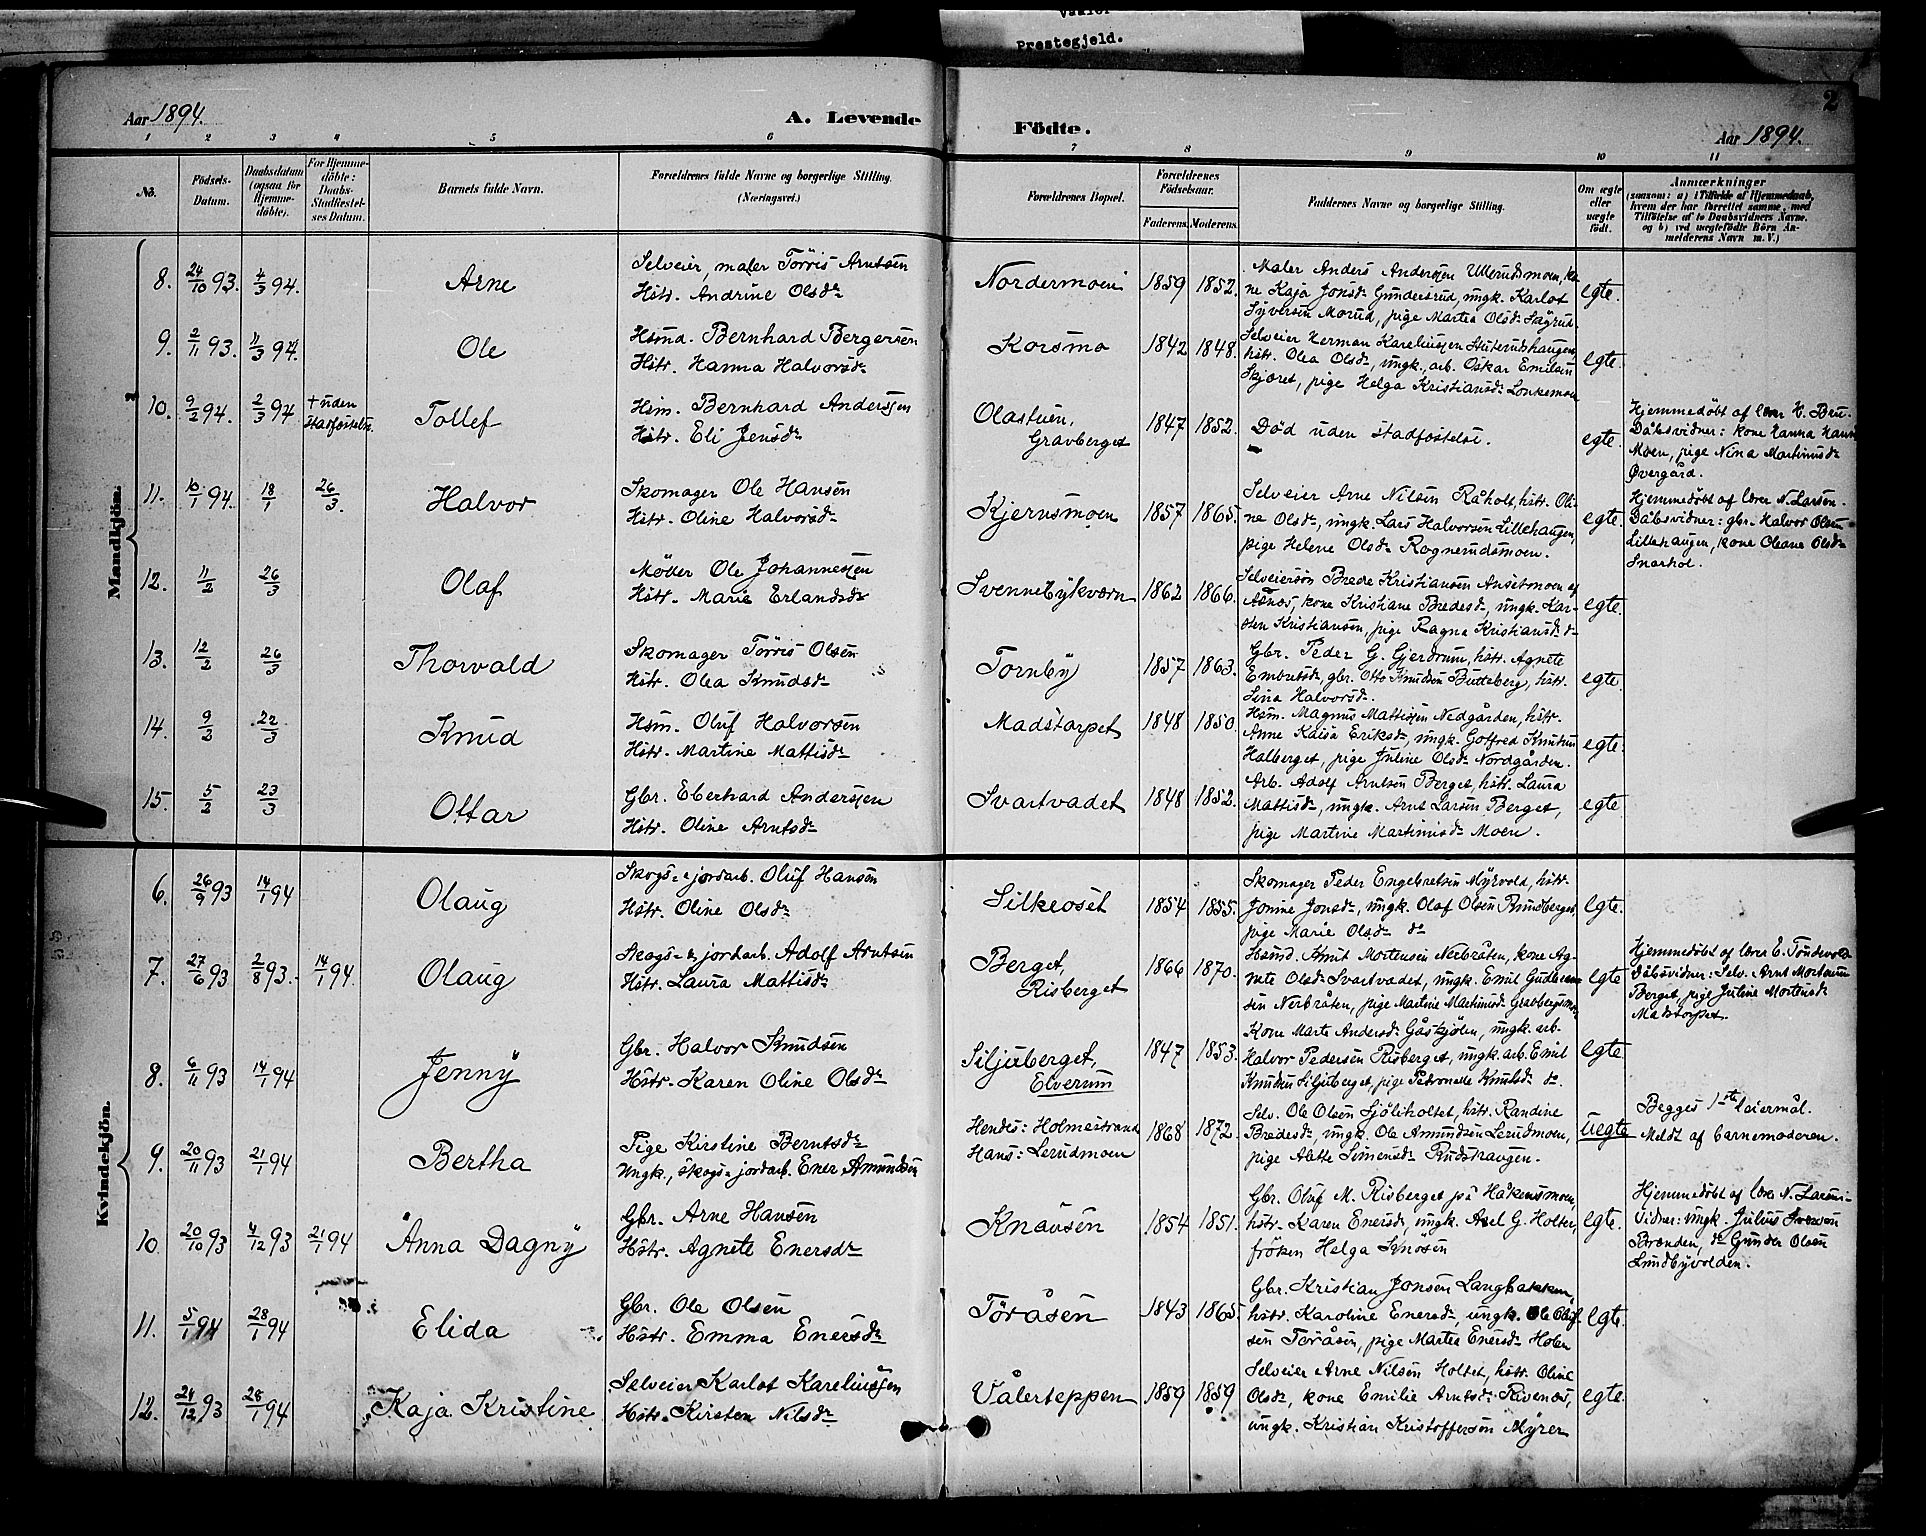 Vaaler
Prestegjeld.
2
Aar 1894.
A. Levende Födte.
Aar 1894.
1 2 3 4 5 6 7 8 9 10 11
No.
Födsels-
Datum.
Daabsdatum
(ogsaa for
Hjemme-
döbte).
For Hjemme-
döbte:
Daabs-
Stadfæstel-
ses Datum.
Barnets fulde Navn.
Forældrenes fulde Navne og borgerlige Stilling.
(Næringsvei.)
Forældrenes Bopæl.
Forældrenes
Födselsaar.
Faderens. Moderens.
Faddernes Navne og borgerlige Stilling.
Om ægte
eller
uægte
födt.
Anmærkninger
(saasom: a) i Tilfælde af Hjemmedaab,
hvem der har forrettet samme, med
Tilföielse af to Daabsvidners Navne,
og b) ved uægtefödte Börn An-
melderens Navn m. V.)
Mandkjön.
8. 24/10 93. 4/3 94. Arne
Selveier, maler Törris Arntsen
Hstr. Andrine Olsdr
Nordermoen 1859 1852.
Maler Anders Anderssen Ullerudsmoen, ko-
ne Kaja Jonsdr Gundersrud, ungk. Karlot
Syversen Morud, pige Martea Olsdr Sagrud.
egte.
9. 2/11 93. 11/3 94. Ole
Hsmd. Bernhard Bergersen
Hstr. Hanna Halvorsdr
Korsmo 1842 1848.
Selveier Herman Kareliussen Stuterudshaugen,
hstr. Olea Olsdr, ungk., arb. Oskar Emilsen
Skjæret, pige Helga Kristiansdr Lonkemoen
egte.
10. 9/2 94. 2/3 94 + uden
Stadfæstelse.
Tollef
Hsm. Bernhard Anderssen
Hstr. Eli Jensdr
Olastuen,
Gravberget
1847 1852.
Död uden stadfæstelse.
egte.
Hjemmedöbt af lærer H. Bru.
Dåbsvidner: kone Hanna Hans
Moen, pige Nina Martinusdr
Övergård.
11. 10/1 94. 18/1 26/3. Halvor
Skomager Ole Hansen
Hstr. Oline Halvorsdr
Kjernsmoen 1857 1865.
Selveier Arne Nilsen Råholt, hstr. Oli-
ne Olsdr, ungk. Lars Halvorsen Lillehaugen,
pige Helene Olsdr Rognerudsmoen.
egte.
Hjemmedöbt af lærer N. Larsen.
Dåbsvidner: gbr. Halvor Olsen
Lillehaugen, kone Oleane Olsdr
Snarhol.
12. 11/2 26/3 Olaf
Möller Ole Johannessen
Hstr. Marie Erlandsdr
Svennebykværn 1862 1866.
Selveiersön Brede Kristiansen Ansetmoen af
Åsnes, kone Kristiane Bredesdr, ungk. Kar-
sten Kristiansen, pige Ragna Kristiansdr dr
egte.
13. 12/2 26/3 Thorvald
Skomager Törris Olsen
Hstr. Olea Knudsdr
Tornby 1857 1863.
Gbr. Peder G. Gjerdrum, hstr. Agnete
Embretsdr, gbr. Otto Knudsen Butteberg, hstr.
Lina Halvorsdr
egte.
14. 9/2 22/3 Knud
Hsm. Oluf Halvorsen
Hstr. Martine Mattisdr
Madstorpet 1848 1850.
Hsm. Magnus Mattissen Nedgården, hstr.
Anne Kaisa Eriksdr, ungk. Gotfred Knudsen
Halberget, pige Juline Olsdr Nordgården.
egte.
15. 5/2 23/3 Ottar
Gbr. Eberhard Anderssen
Hstr. Oline Arntsdr
Svartvadet 1848 1852.
Arb. Adolf Arntsen Berget, hstr. Laura
Mattisdr, ungk. Arne Larsen Berget,
pige Martine Martinusdr Moen.
egte.
Kvindekjön.
6. 26/9 93 14/1 94 Olaug
Skogs- & jordarb. Oluf Hansen
Hstr. Oline Olsdr
Silkeoset 1854 1855.
Skomager Peder Engebretsen Myrvold, hstr.
Jonine Jonsdr, ungk. Olaf Olsen Rundberget,
pige Marie Olsdr dr
egte.
7. 27/6 93 2/8 93. 14/1 94. Olaug
Skogs- & jordarb. Adolf Arntsen
Hstr. Laura Mattisdr
Berget,
Risberget
1866 1870.
Hsmd. Knut Mortensen Nerbråten, kone Ag-
nete Olsdr Svartvadet, ungk. Emil Gudbrand-
sen Nerbråten, pige Martine Martinusdr Gravbergsmoen
egte
Hjemmedöbt af lærer E. Töndevold
Dåbsvidner: Selv. Arnt Mortensen
Berget, pige Juline Mortensdr
Madstorpet.
8. 6/11 93 14/1 94 Jenny
Gbr. Halvor Knudsen
Hstr. Karen Oline Olsdr
Siljuberget,
Elverum
1847 1853.
Kone Marte Andersdr Gåskjölen, ungk. arb.
Halvor Pedersen Risberget, ungk. arb. Emil
Knudsen Siljuberget, pige Petronelle Knutsdr dr.
egte
9. 20/11 93 21/1 94 Bertha
Pige Kirstine Berntsdr
Ungk., skogs- jordarb. Ener Amundsen
Hendes: Holmestrand
Hans: Lerudmoen
1868 1872.
Selv. Ole Olsen Sjöliholtet, hstr. Randine
Bredesdr, ungk. Ole Amundsen Lerudmoen,
pige Alette Simensdr Rudshaugen.
uegte
Begges 1ste leiermål.
Meldt af barnemoderen.
10. 20/10 93 4/12 93 21/1 94 Anna Dagny
Gbr. Arne Hansen
Hstr. Agnete Enersdr
Knausen 1854 1851.
Gbr. Oluf M. Risberget på Håkensmoen,
hstr. Karen Enersdr, ungk. Axel G. Holter,
fröken Helga Knösen
egte.
Hjemmedöbt af lærer N. Larsen.
Vidner: ungk. Julius Iversen
Brænden, do Gunder Olsen
Lundbyvolden.
11. 5/1 94 28/1 94 Elida
Gbr. Ole Olsen
Hstr. Emma Enersdr
Töråsen 1843 1865.
Gbr. Kristian Jonsen Langbakken,
hstr. Karoline Enersdr, ungk. Ole Oluf-
sen Töråsen, pige Martea Enersdr Holen
egte.
12. 24/12 93 28/1 94 Kaja Kristine
Selveier Karlot Kareliussen
Hstr. Kirsten Nilsdr
Vålerteppen 1859 1859
Selveier Arne Nilsen Holtet, hstr. Oline
Olsdr, kone Emilie Arntsdr Risenæs,
ungk. Kristian Kristoffersen Myrer
egte.